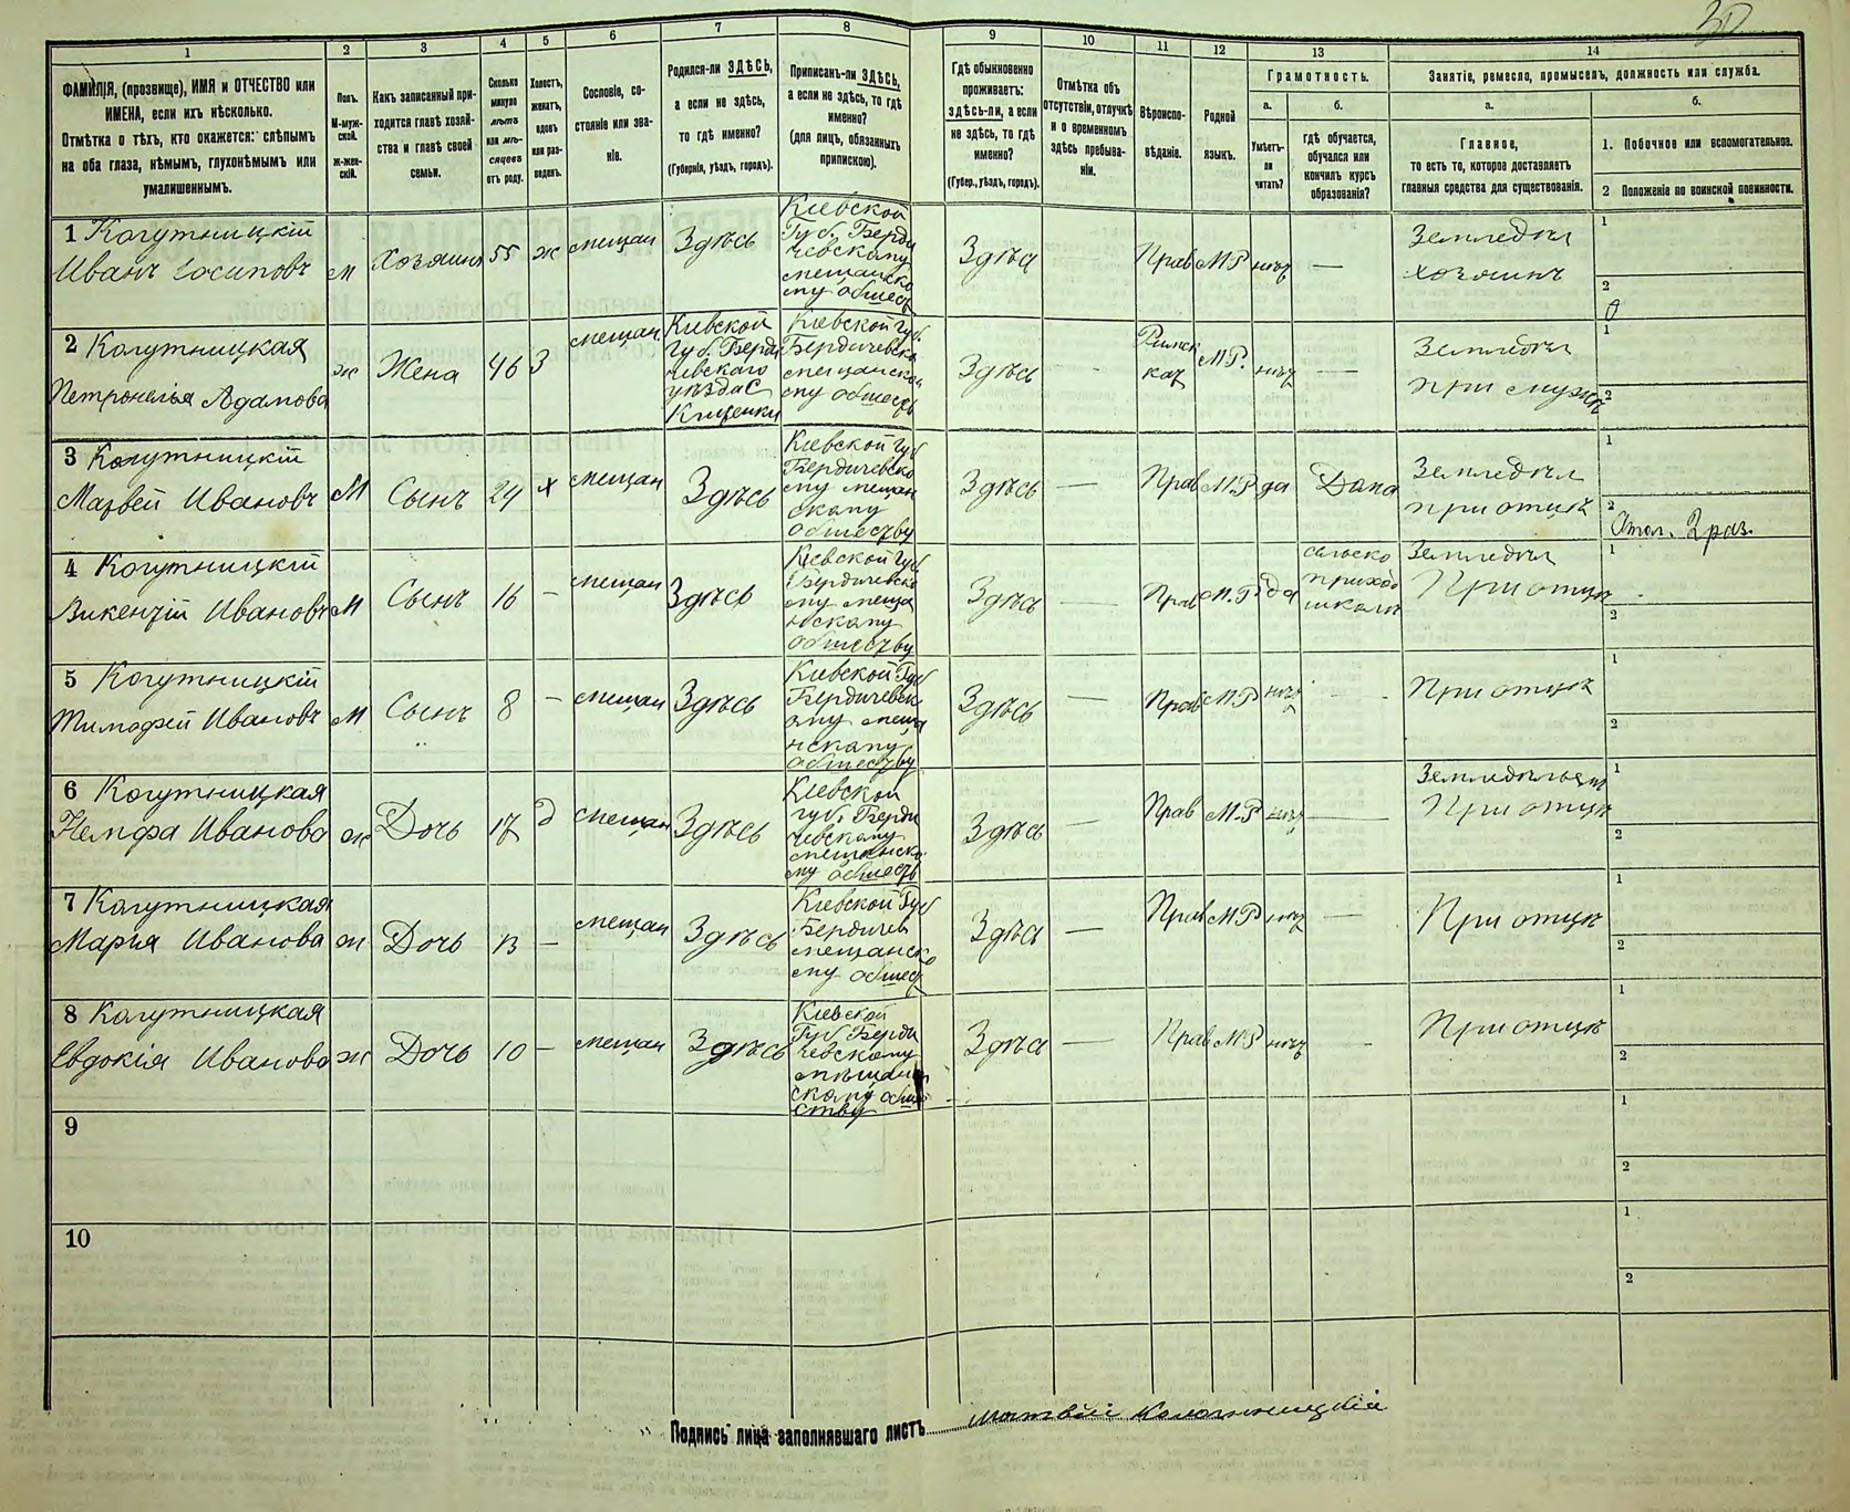 30
1
2
3
4
5
6
7
8
9
10
11
12
13
14
ФАМИЛІЯ, (прозвище), ИМЯ и ОТЧЕСТВО или
ИМЕНА, если ихъ нѣсколько.
Отмѣтка о тѣхъ, кто окажется: слѣпымъ
на оба глаза, нѣмымъ, глухонѣмымъ или
умалишеннымъ.
Полъ.
М-муж-
ской.
Ж-жен-
скій.
Какъ записанный при-
ходится главѣ хозяй-
ства и главѣ своей
семьи.
Сколько
минуло
лѣтъ
или мѣ-
сяцевъ
отъ роду.
Холостъ,
женатъ,
вдовъ
или раз-
веденъ.
Сословіе, со-
стояніе или зва-
ніе.
Родился-ли ЗДѢСЬ,
а если не здѣсь,
то гдѣ именно?
(Губернія, уѣздъ, городъ).
Приписанъ-ли ЗДѢСЬ,
а если не здѣсь, то гдѣ
именно?
(для лицъ, обязанныхъ
припискою).
Гдѣ обыкновенно
проживаетъ:
здѣсь-ли, а если
не здѣсь, то гдѣ
именно?
(Губер., уѣздъ, городъ).
Отмѣтка объ
отсутствіи, отлучкѣ
и о временномъ
здѣсь пребыва-
ніи.
Вѣроиспо-
вѣданіе.
Родной
языкъ.
Грамотность.
а.
б.
Умѣетъ-
ли
читать?
гдѣ обучается,
обучался или
кончилъ курсъ
образованія?
Занятіе, ремесло, промыселъ, должность или служба.
а.
б.
Главное,
то есть то, которое доставляетъ
главныя средства для существованія.
1. Побочное или вспомогательное.
2 Положеніе по воинской повинности.
1 Когутницкій
Иванъ Іосиповъ
м
Хозяинъ
55
ж
мещан
Здѣсь
Кіевской
Губ. Берди
чевскому
мещанско
му общесъ
Здѣсь
Прав
М Р
нѣтъ
—
Земледѣл
хозяинъ
1
2
2 Когутницкая
Петронелья Адамова
ж
Жена
46
З
мещан
Кіевской
губ. Берди
чевскаго
уѣзда С
Кіевской губ.
Бердичевско
мещанско
му общесъ
Здѣсь
М Р.
нѣтъ
—
Земледѣл
при мужѣ
1
2
3 Когутницкій
Матвей Ивановъ
М
Сынъ
24
х
мещан
Здѣсь
Кіевской губ
Бердичевско
му мещан
скому
обществу
Здѣсь
—
Прав
М. Р
да
Дома
Земледѣл
при отцѣ
1
2
4 Когутницкій
Викентій Ивановъ
М
Сынъ
16
-
мещан
Здѣсь
Кіевской губ
Бердичевско
му меща
нскому
обществу
Здѣсь
—
Прав
М. Р
да
сельско
приход
школѣ
Земледѣл
При отцѣ
1
2
5 Когутницкій
Тимофей Ивановъ
М
Сынъ
8
-
мещан
Здѣсь
Кіевской Губ
Бердичевск
ому меща
нскому
обществу
Здѣсь
—
Прав
М. Р
нѣтъ
При отцѣ
1
2
6 Когутницкая
Иванова
ж
Дочь
17
д
мещан
Здѣсь
Кіевской
губ. Берди
чевскому
мещанско
му общесъ
Здѣсь
—
Прав
М. Р
нѣтъ
—
При отцѣ
1
2
7 Когутницкая
Мария Иванова
ж
Дочь
13
—
мещан
Здѣсь
Кіевской Губ
Бердичев
мещанско
му общес
Здѣсь
—
Прав
М Р
нѣтъ
—
При отцѣ
1
2
8 Когутницкая
Евдокія Иванова
ж
Дочь
10
—
мещан
Здѣсь
Кіевской
Губ Берди
чевскому
мѣщан
скому обще
ству
Здѣсь
—
Прав
М Р
нѣтъ
-
При отцѣ
1
2
9
1
2
10
1
2
Подпись лица заполнявшаго листъ